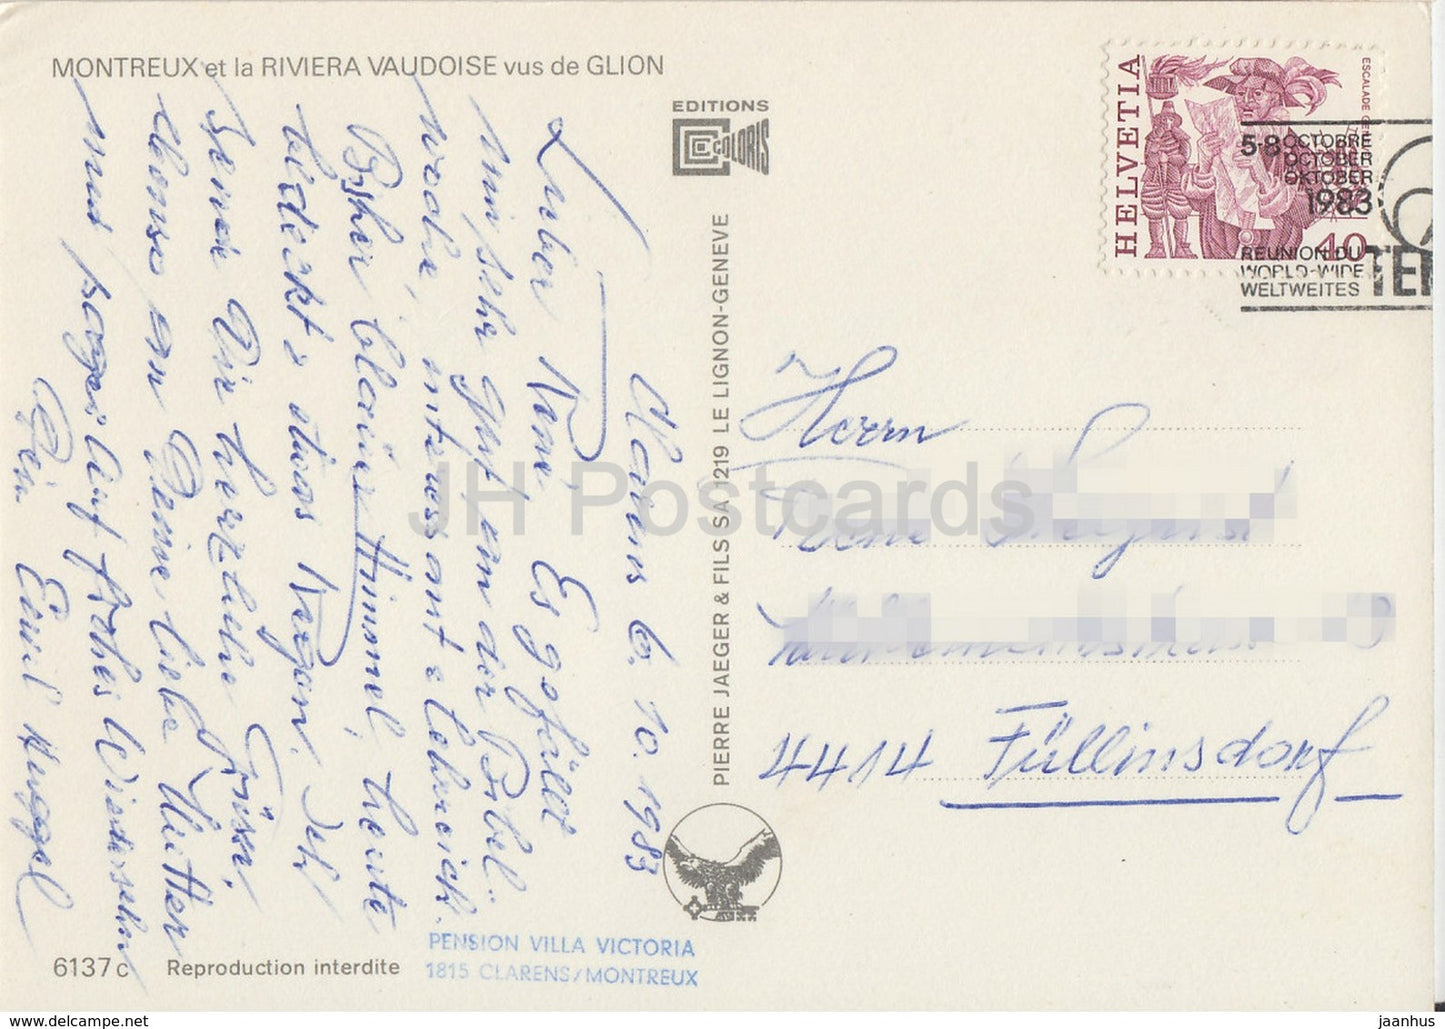 MONTREUX et la RIVIERA VAUDOISE vus de GLION
EDITIONS
COLORIS
HELVETIA
ESCALADE GE
40
5-8 OCTOBRE
OCTOBER
OKTOBER
1983
REUNION DU
WORLD-WIDE
WELTWEITES
TEM
Clarens 6. 10. 1983
Lieber René, Es gefällt
mir sehr gut an der Bibel-
woche, interessant & lehrreich.
Bisher blauer Himmel, heute
bedeckt & etwas Regen. Ich
sende Dir herzliche Grüsse,
ebenso an Deine liebe Mutter
und Auf frohes Wiedersehn
Dein Emil Huggel
PIERRE JAEGER & FILS SA 1219 LE LIGNON-GENEVE
Herrn
René
4414 Füllinsdorf
JH Postcards
PENSION VILLA VICTORIA
1815 CLARENS/MONTREUX
6137 c Reproduction interdite
www.delcampe.net
jaanhus